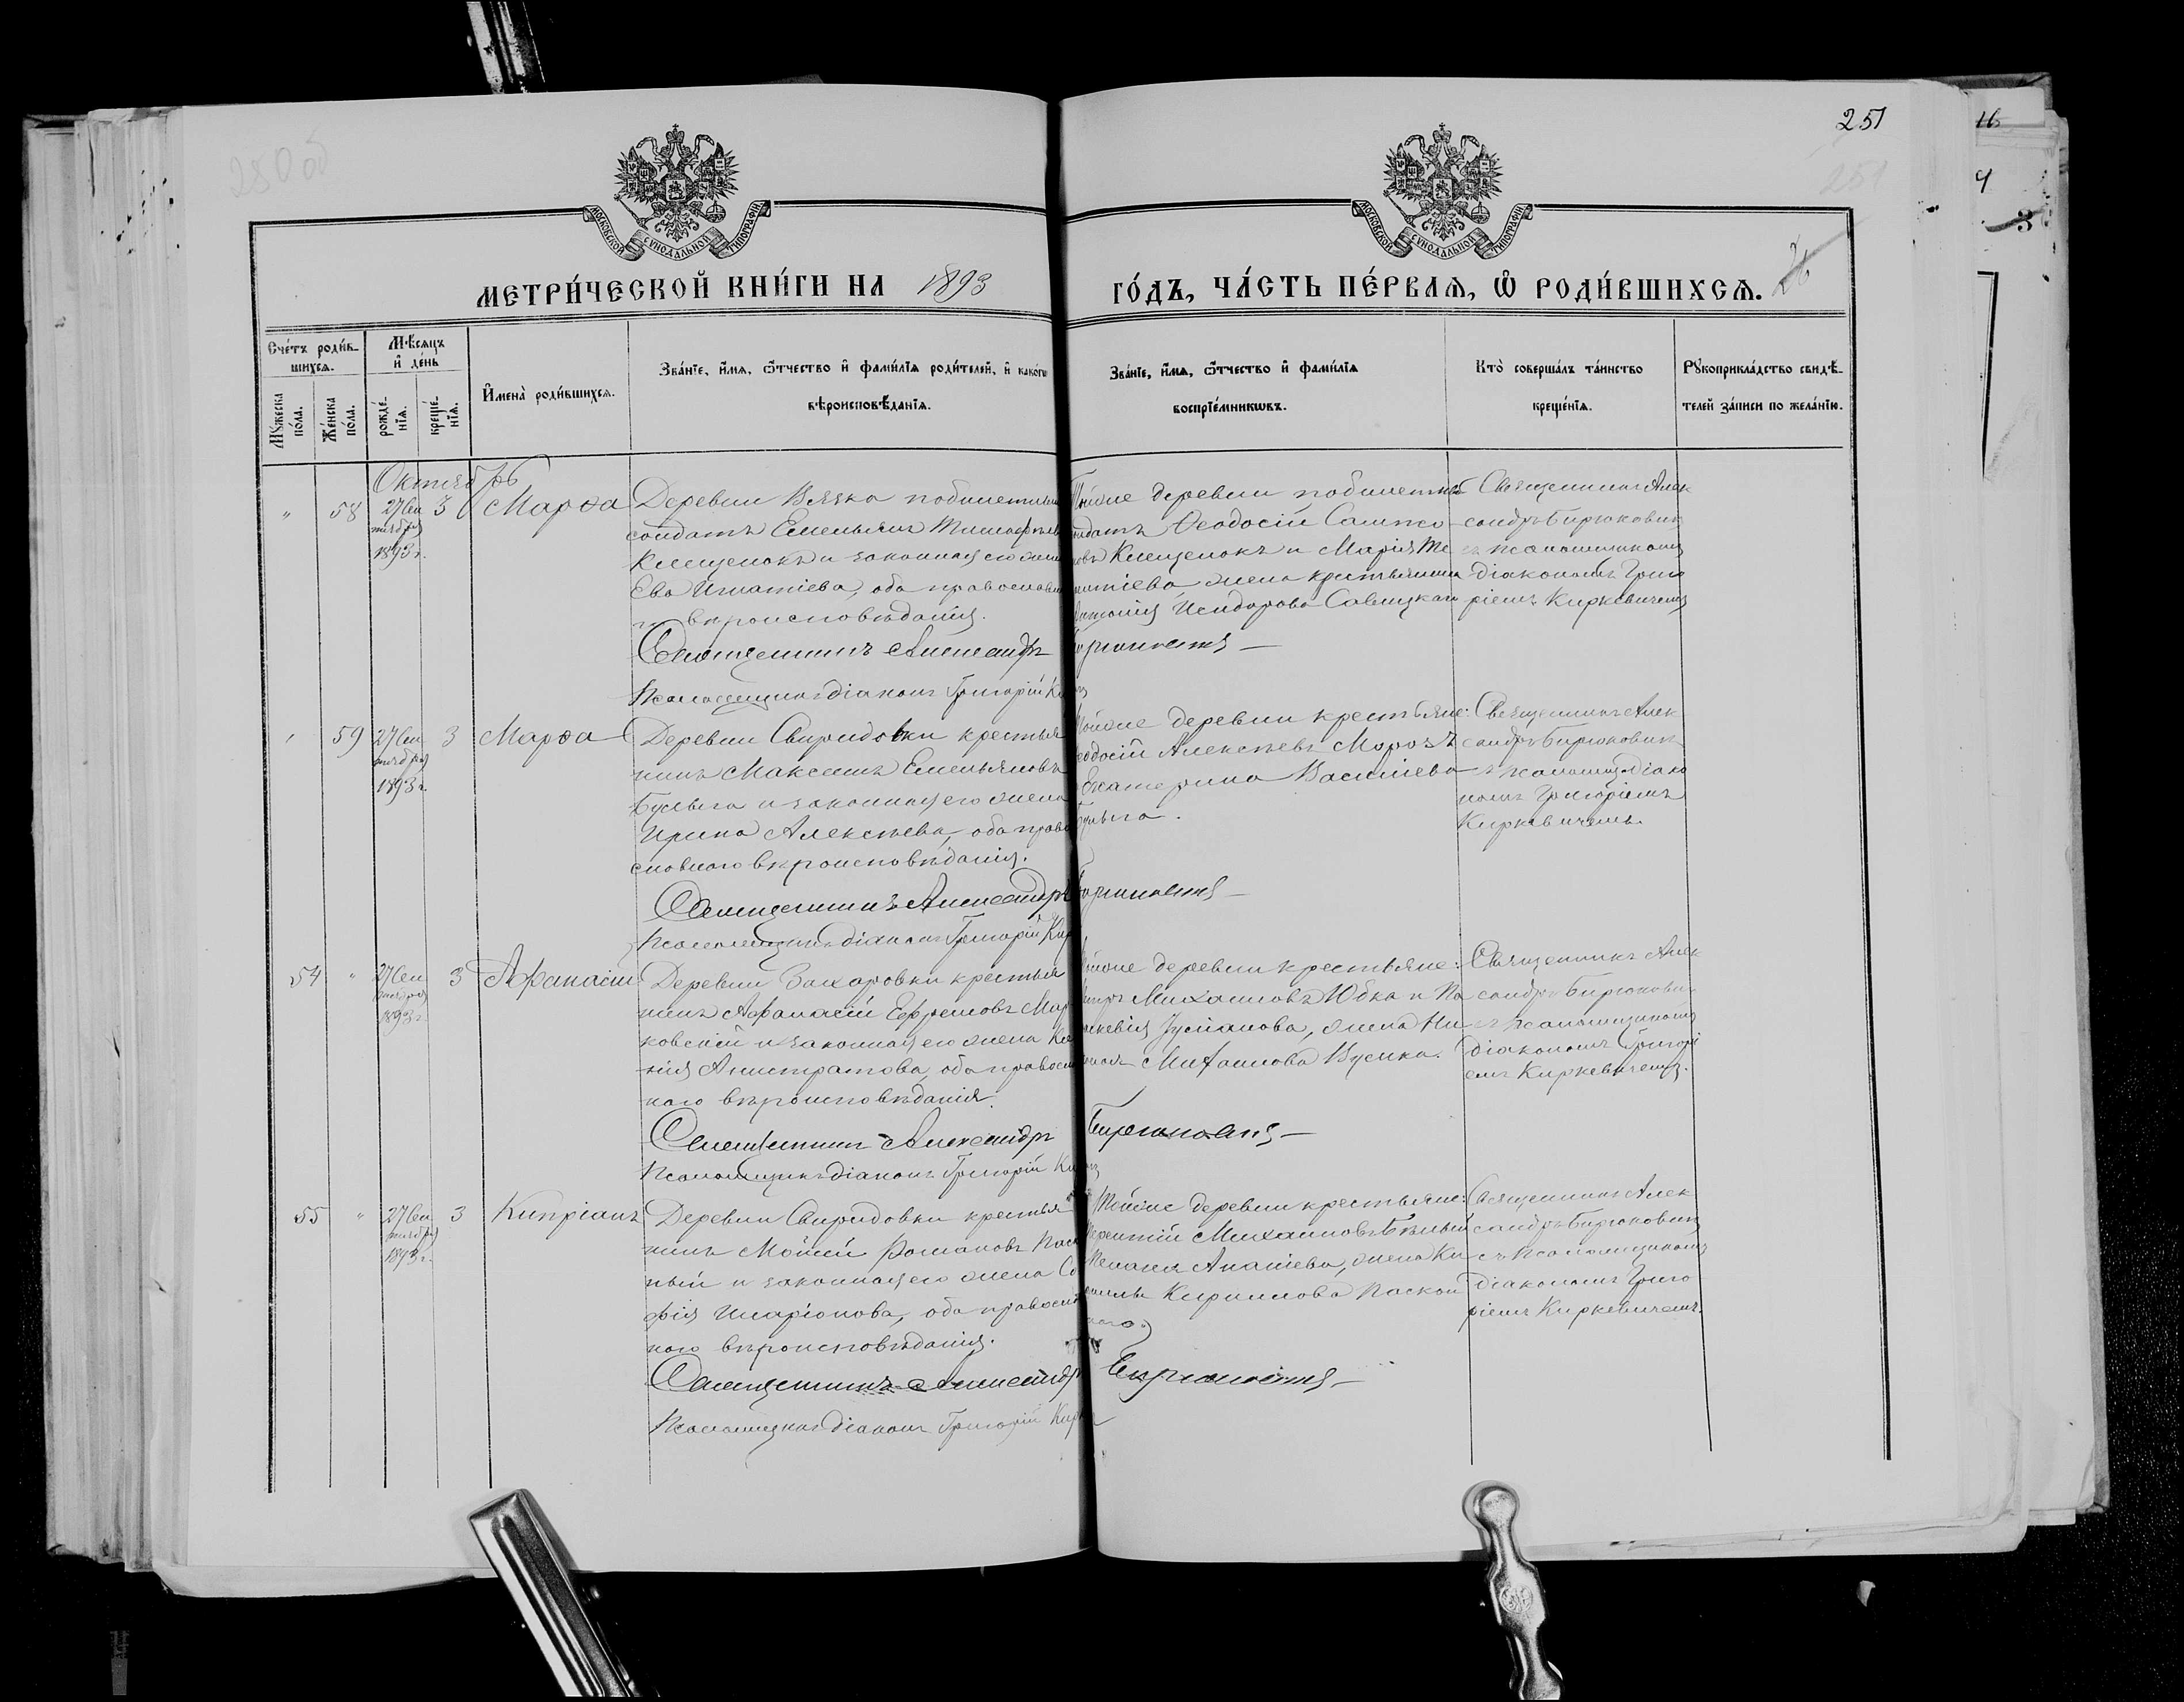 251
250 об
251
МОСКОВСКОЙ СѴНОДАЛЬНОЙ ТИПОГРАФІИ
МОСКОВСКОЙ СѴНОДАЛЬНОЙ ТИПОГРАФІИ
МЕТРИ́ЧЕСКОЙ КНИ́ГИ НА 1893
ГО́ДЪ, ЧА́СТЬ ПЕ́РВАѦ, Ѡ РОДИ́ВШИХСѦ. 26
Счётъ роди́в-
шихсѧ.
Мꙋ́жеска по́ла.
Же́нска по́ла.
Мѣ́сѧцъ и҆ де́нь
рожде́-нїѧ.
креще́-нїѧ.
И҆мена̀ роди́вшихсѧ.
Зва́нїе, и҆́мѧ, ѻ҆́тчество и҆ фами́лїѧ роди́телей, и҆ како́гѡ
вѣроисповѣ́данїѧ.
Зва́нїе, и҆́мѧ, ѻ҆́тчество и҆ фами́лїѧ
воспрїе́мникѡвъ.
Кто̀ соверша́лъ та́инство
креще́нїѧ.
Рꙋкоприкла́дство свидѣ́-
телей за́писи по жела́нїю.
Октябрь
" 58 27 Сен 3 Марѳа
тября
1893 г.
Деревни
солдатъ Емельянъ
Клещенокъ и законная его жена
Ева Игнатіева, оба православна
го вѣроисповѣданія.
Священникъ Александръ Бирюковичъ
Псаломщикъ діаконъ Григорій
Тойже деревни
Ѳеодосій
Клещенокъ и Марія
жена крестьянина
Исидорова Савицкаго
Священникъ Алек
сандръ Бирюкович
ъ псаломщикомъ
діакономъ Григо
ріемъ Киркевичемъ
59 27 Сен 3 Марѳа
тября
1893 г.
Деревни Свиридовки крестья
нинъ Максимъ Емельяновъ
Бульга и законная его жена
Ирина Алексѣева, оба право
славнаго вѣроисповѣданія.
Священникъ Александръ Бирюковичъ
Псаломщикъ діаконъ Григорій
Тойже деревни крестьяне:
Ѳеодосій Алексѣевъ Морозъ
Екатерина Василіева
Бульга.
Священникъ Алек
сандръ Бирюкович
ъ псаломщ. діако
номъ Григоріемъ
Киркевичемъ.
54 " 27 Сен 3 Аѳанасій
тября
1893 г.
Деревни Захаровки крестья
нинъ Аѳанасій Ефремовъ
ковскій и законная его жена
нія Анистратова, оба православ
наго вѣроисповѣданія.
Священникъ Александръ Бирюковичъ
Псаломщикъ діаконъ Григорій
Тойже деревни крестьяне:
Михаиловъ Юбка и Па
жена Ни
Михаилова
Священникъ Алек
сандръ Бирюкович
ъ псаломщикомъ
діакономъ Григорі
емъ Киркевичемъ.
55 " 27 Сен 3 Кипріанъ
тября
1893 г.
Деревни Свиридовки крестья
нинъ Мойсей Романовъ
ный и законная его жена Со
фія Иларіонова, оба православ
наго вѣроисповѣданія.
Священникъ Александръ Бирюковичъ
Псаломщикъ діаконъ Григорій
Тойже деревни крестьяне:
Терентій Михаиловъ Бѣлый
Ананіева, жена Ки
Кирилова
наго.
Священникъ Алек
сандръ Бирюкович
съ псаломщикомъ
діакономъ Григо
ріемъ Киркевичемъ.